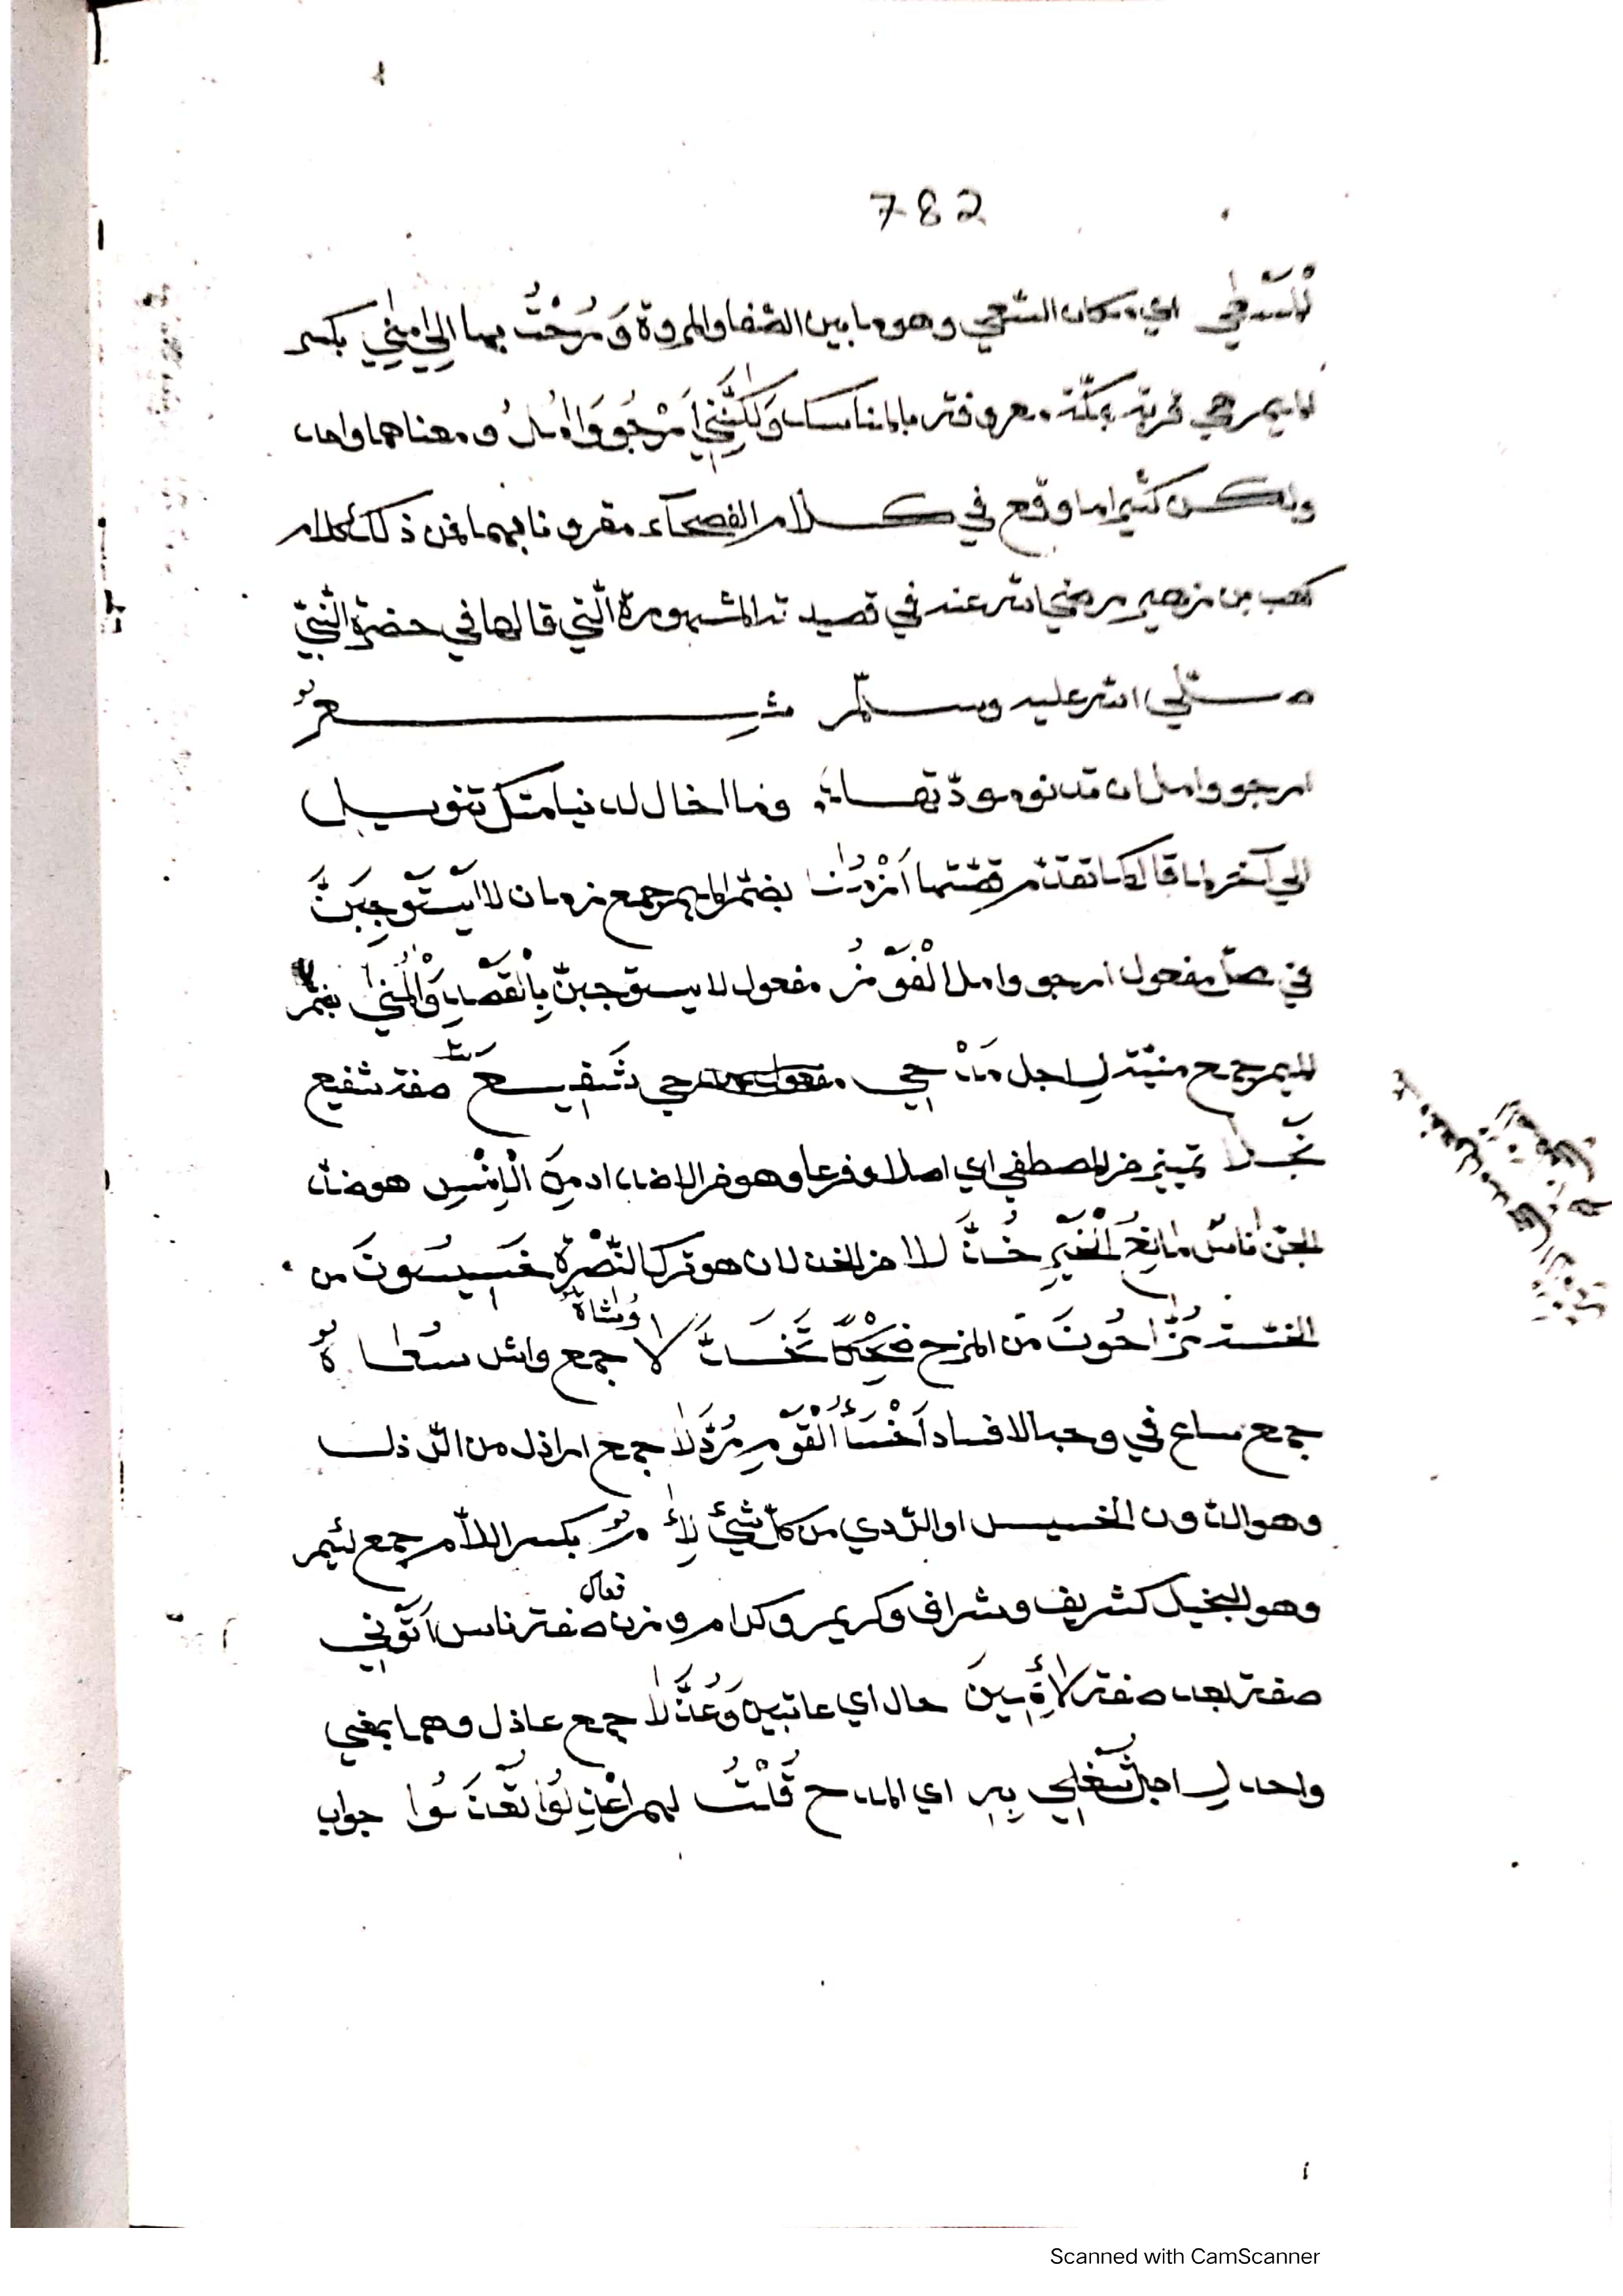 782
اي مكان السّعي وهو ما بين الصّفا والمروة وَرُحْتُ بها اِلٰي مِنٰي بكسر
الميم هي قرية بمكّة معروفة بالمناسك وَلٰكِنَّنِي اَرْجُو وَاٰمُلُ ومعناهما واحد
ولكن كثيرا ما وقع في كلام الفصحآء مقرونا بهما فمن ذلك كلام
كعب بن زهير رضي الله عنه في قصيدته المشهورة الّتي قالها في حضرة النّبيّ
صلّي الله عليه وسلّم شِعْرٌ
ارجو وامل ان تدنو مودّتها وما اخال لدنيا منك تنويل
الي آخر ما قال كما تقدّم قصّتها بضمّ الميم جمع زمان لا يَسْتَوْجِبَنَّ
في محلّ مفعول ارجو وامل الْفَوْزُ مفعول لا يستوجبنّ بِالْقَصْدِ وَالْمُنٰي بضمّ
الميم جمع منية لاجل مَدْحِي شَفِيعَ صفة شفيع
نَجْلًا تمييز من المصطفي اي اصلا وفرعا وهو من الاضداد مِنَ الْاِنْسِ هو ضدّ
الجنّ نَاسٌ مَانِعُ الْخَيْرِ خُذَّلًا من الخذلان هو ترك النّصْرة خَسِيسُونَ من
الخسّة مُزَّاحُونَ من المزح ضِحْكًا وُشَاةٌ جمع واش سُعَاةٌ
جمع ساع في وجه الافساد اَخْسَأُ الْقَوْمِ رُذَّلًا جمع اراذل من الرّذل
وهو الدّون الخسيس او الرّدي من كلّ شيئ لِئَامٌ بكسر اللّام جمع لئيم
وهو البخيل كشريف وشراف وكريم وكرام وزن فعال صفة ناس اَتَوْنِي
صفة بعد صفة لَائِمِينَ حال اي عاتبين وَعُذَّلًا جمع عاذل وهما بمعني
واحد لاجل شُغْلِي بِهِ اي المدح قُلْتُ لهم جواب
Scanned with CamScanner